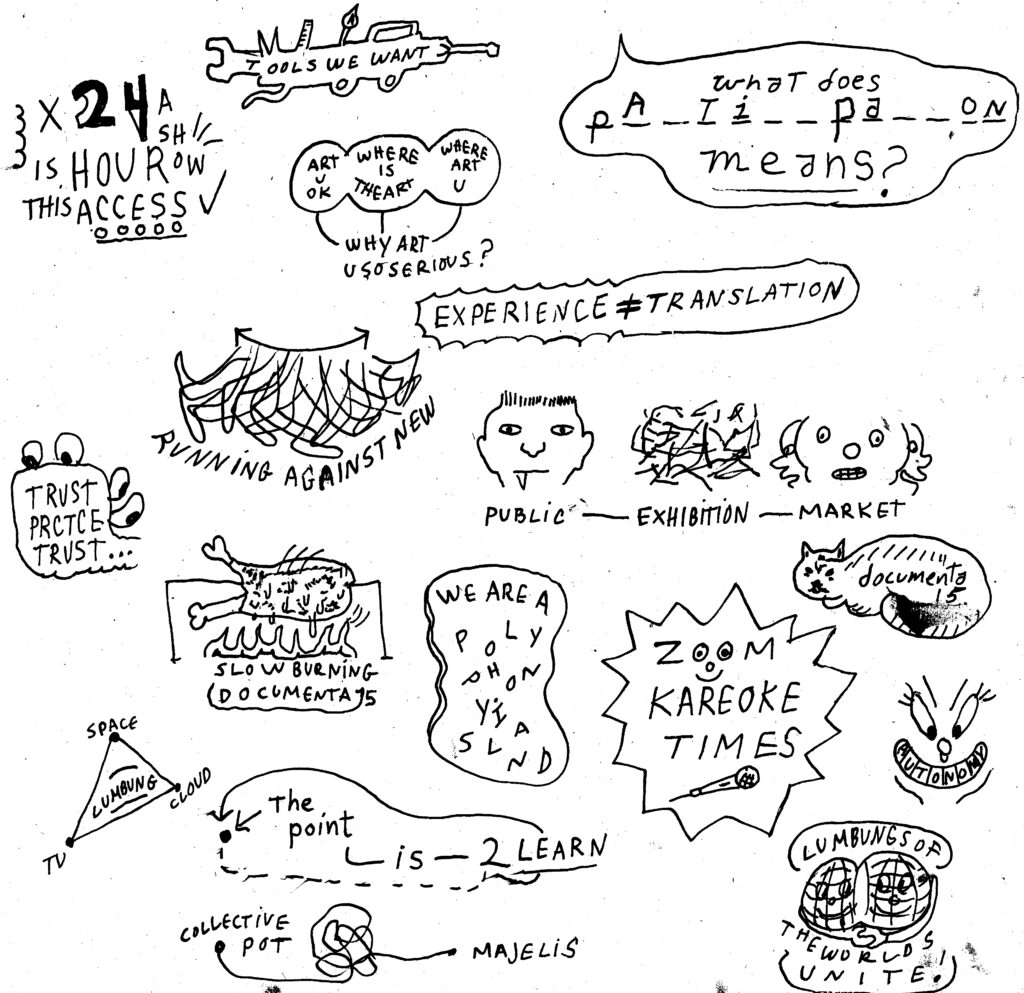 TOOLS WE WANT
X 24 A
SH
IS HOUR OW
THIS ACCESS
what does
pA__Ii__pa__ON
means?
ART
U
OK
WHERE
IS
THE ART
WHERE
ART
U
WHY ART
U SO SERIOUS?
EXPERIENCE ≠ TRANSLATION
RUNNING AGAINST NEW
PUBLIC — EXHIBITION — MARKET
TRUST
PRCTCE
TRUST...
documenta
15
SLOW BURNING
(DOCUMENTA 15
WE ARE A
POLY
PHON
Y I
SLAND
ZOOM
KAREOKE
TIMES
AUTONOMY
SPACE
LUMBUNG
CLOUD
TV
The
point
is — 2 LEARN
LUMBUNGS OF
THE WORLDS
UNITE!
COLLECTIVE
POT
MAJELIS